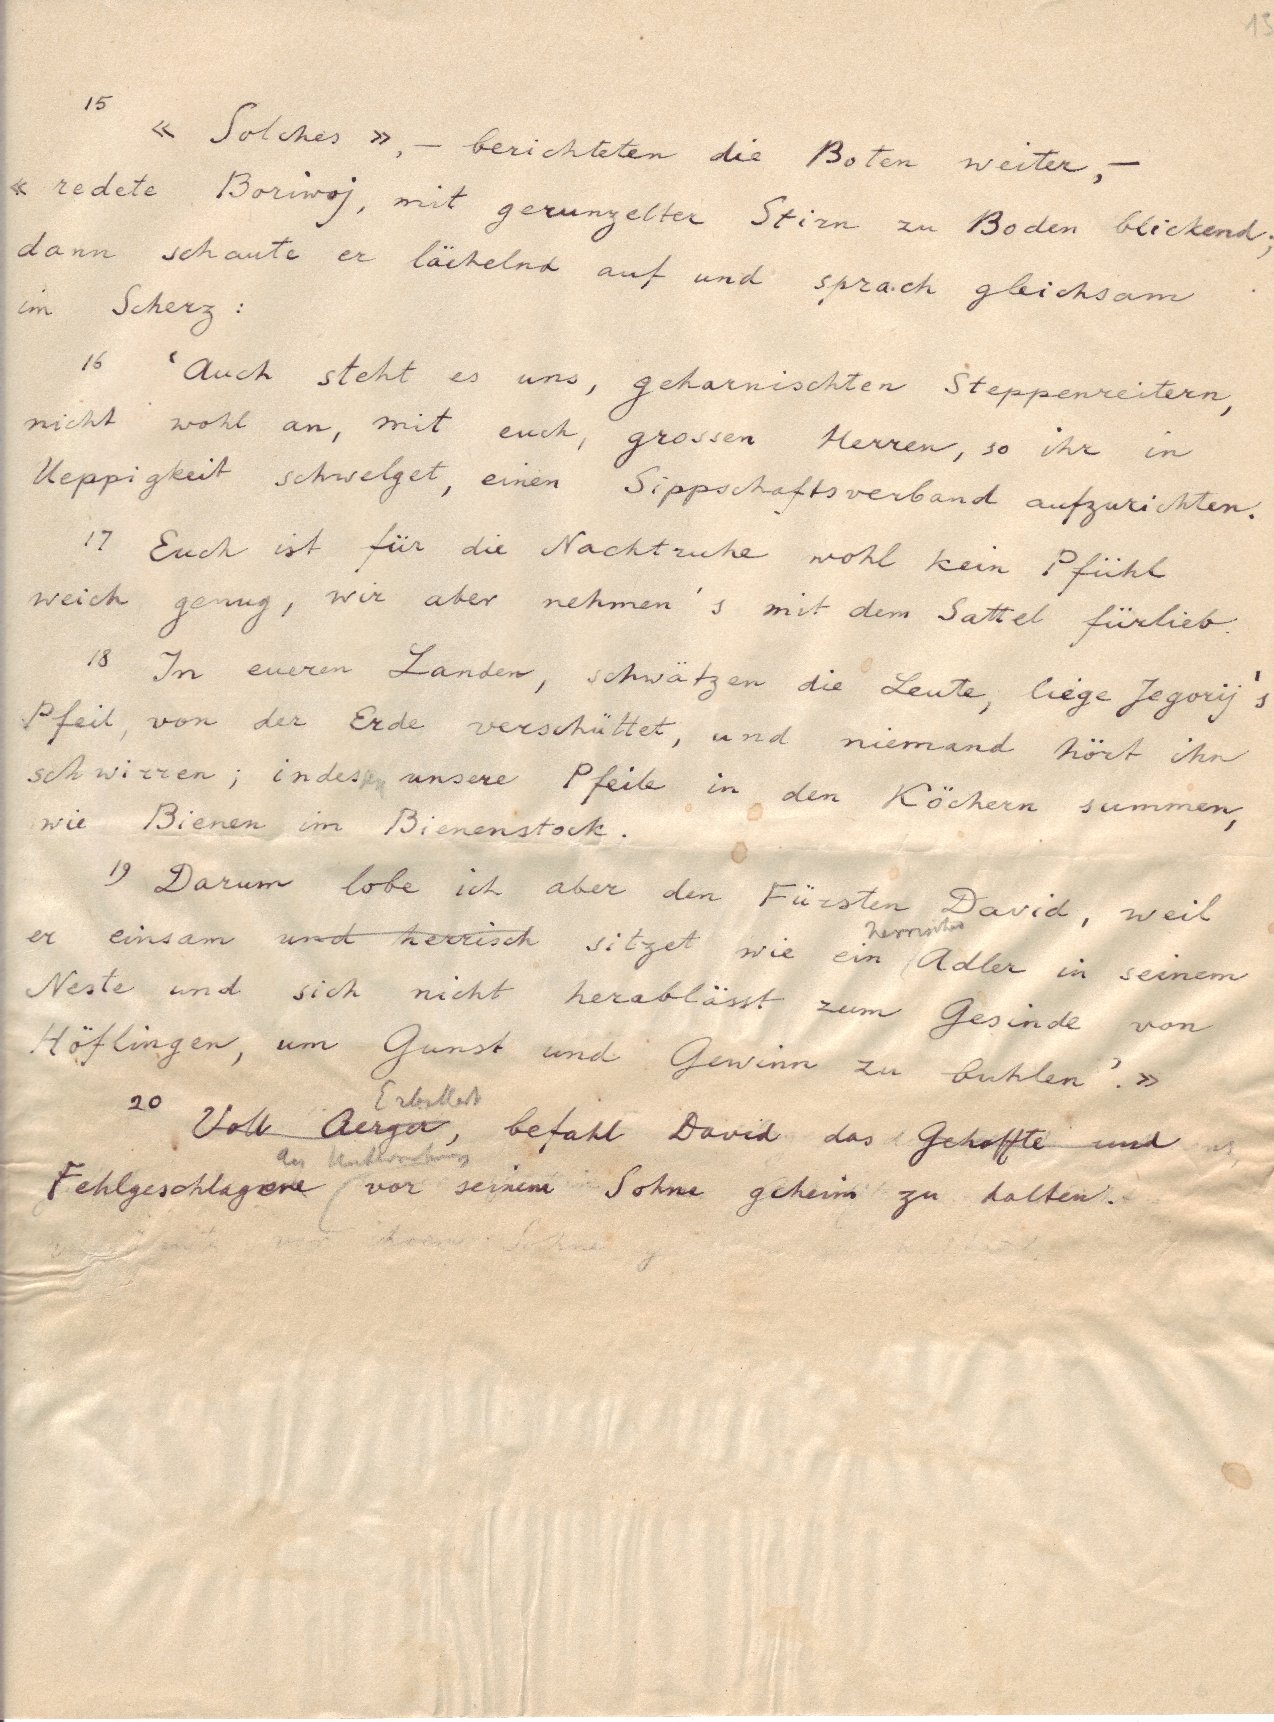 13
15 « Solches », – berichteten die Boten weiter, –
« redete Boriwoj, mit gerunzelter Stirn zu Boden blickend;
dann schaute er lächelnd auf und sprach gleichsam
im Scherz:
16 ‘Auch steht es uns, geharnischten Steppenreitern,
nicht wohl an, mit euch, grossen Herren, so ihr in
Ueppigkeit schwelget, einen Sippschaftsverband aufzurichten.
17 Euch ist für die Nachtruhe wohl kein Pfühl
weich genug, wir aber nehmen's mit dem Sattel fürlieb.
18 In eueren Landen, schwätzen die Leute, liege Jegorij's
Pfeil, von der Erde verschüttet, und niemand hört ihn
schwirren; indessen unsere Pfeile in den Köchern summen,
wie Bienen im Bienenstock.
19 Darum lobe ich aber den Fürsten David, weil
herrischer
er einsam und herrisch sitzet wie ein Adler in seinem
Neste und sich nicht herablässt zum Gesinde von
Höflingen, um Gunst und Gewinn zu buhlen’.»
Erbittert
20 Voll Aerger, befahl David das Gehoffte und
Fehlgeschlagene vor seinem Sohne geheim zu halten.